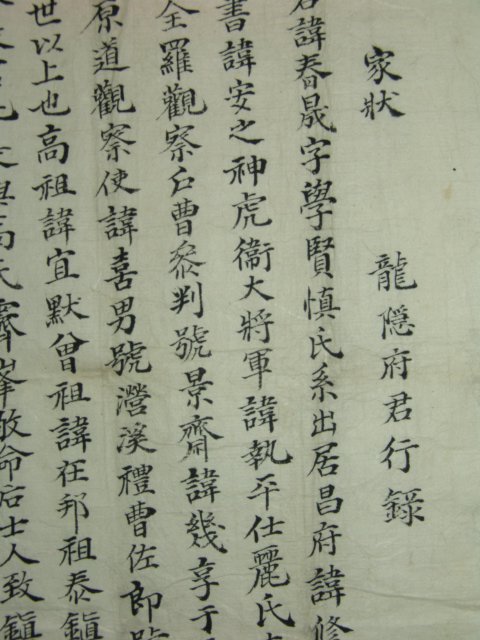 家狀
龍隱府君行錄
諱春晟字學賢愼氏系出居昌府諱修
書諱安之神虎衞大將軍諱執平仕麗氏
全羅觀察戶曹叅判號景齋諱幾享于
原道觀察使諱喜男號瀯溪禮曹佐郞號
世以上也高祖諱宜默曾祖諱在邦祖泰鎭
高氏霽峯敬命后士人致鎭